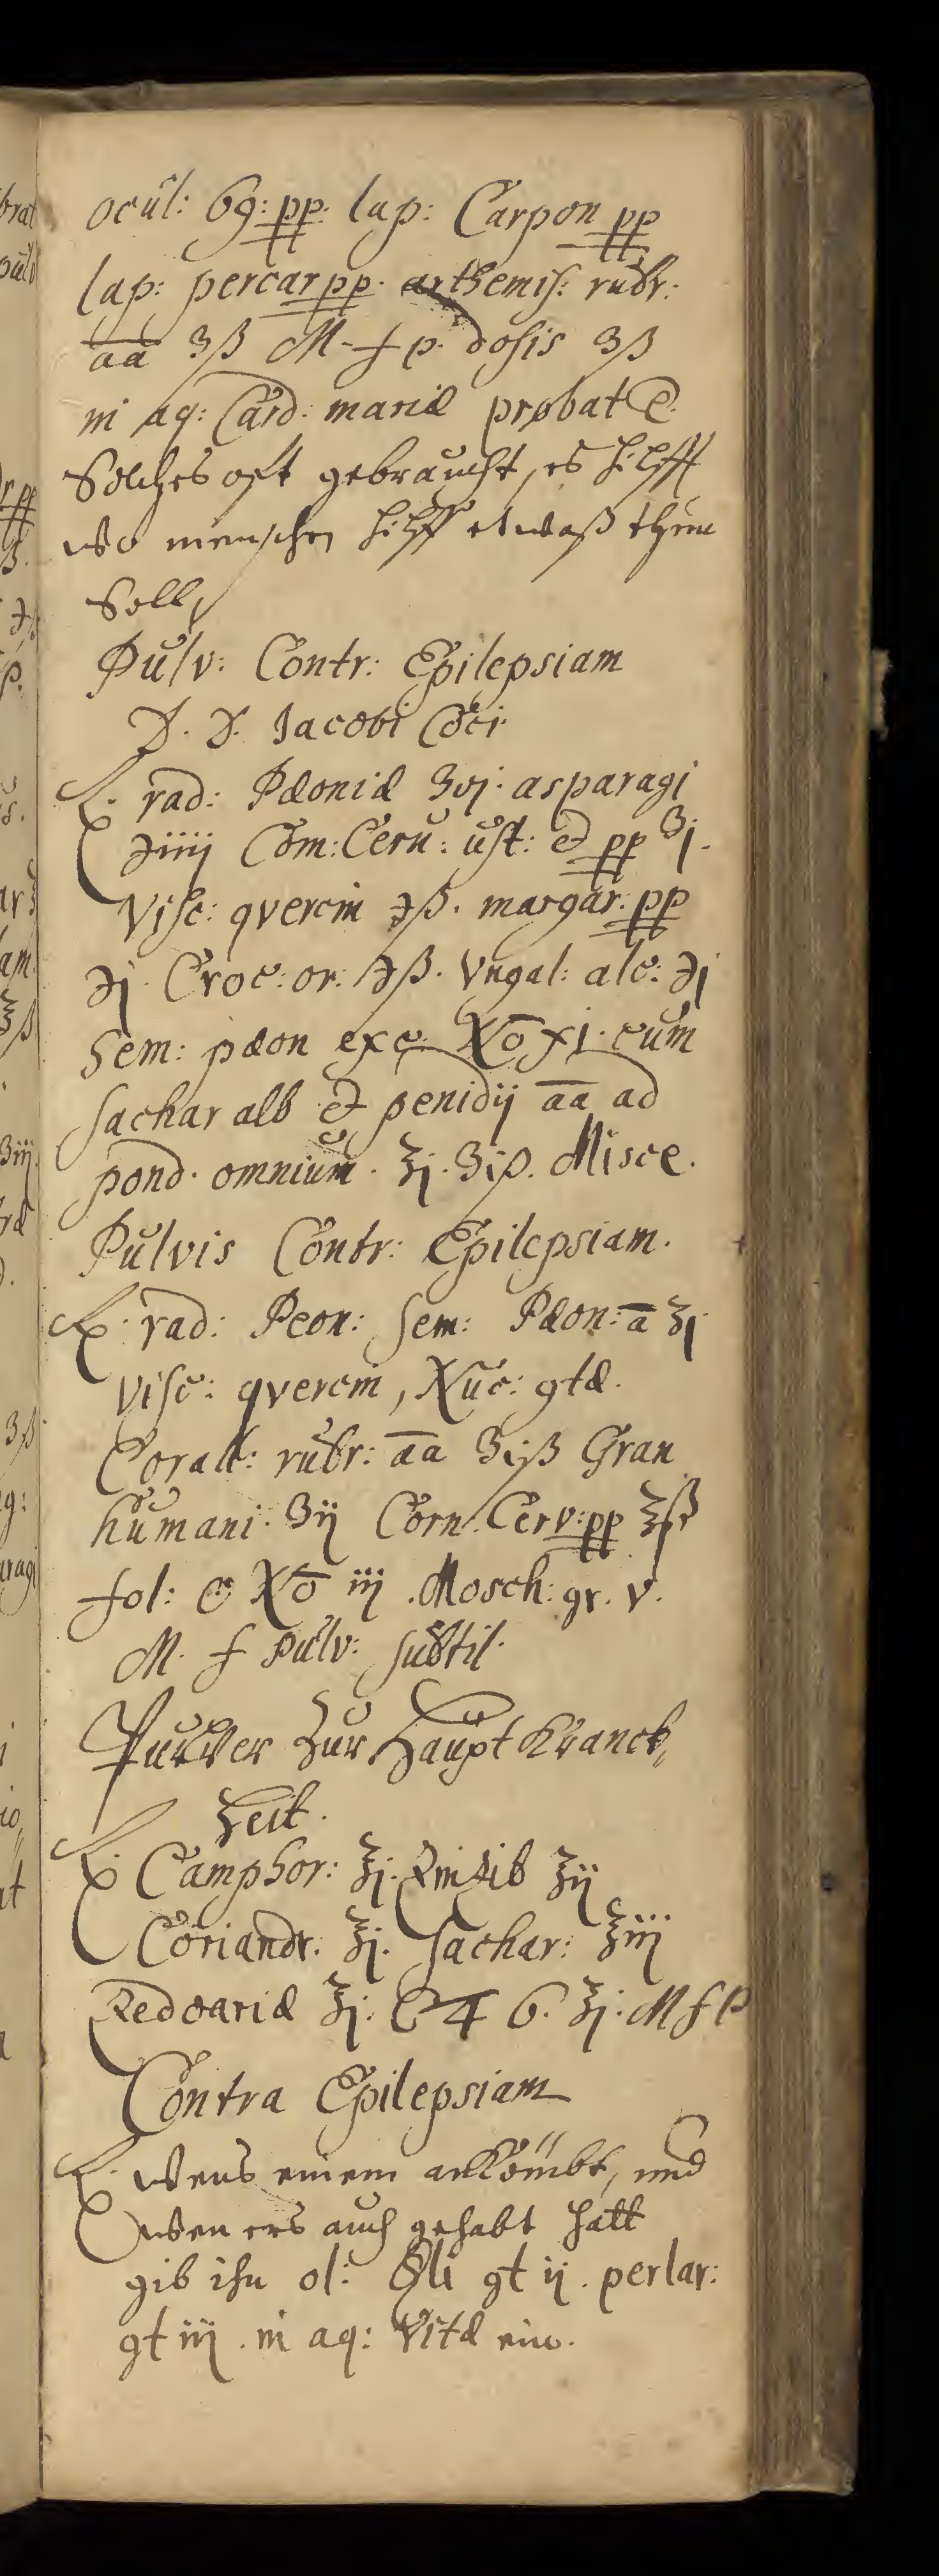 ocúl: 69: pp: lap: Carpon pp
lap: percar pp. arthemis: rubr:
aa ʒß M. f p. dosis ʒß
in aq: Card: mariæ probat
Solches oft gebraucht, es hilfft
wo menschen hilff etwaß thun
Soll,
Pulv: Contr: Epilepsiam
D. D. Jacobi Coci
℞. rad: Pæoniæ ʒvj. asparagi
℈iiij Corn: Cerv: ust: et pp ʒj.
Visc: quercin ℈ß. margar: pp
℈j. Croc: or: ℈ß. Ungul: alc: ℈j
Sem: pæon exc. No xj. cum
sachar alb et penidij aa ad
pond. omnium. ℥j. ʒiß. Misce.
Pulvis Contr: Epilepsiam.
℞. rad: Peon: sem: Pæon: a ℥j
Visc: quercin, Nuc: gtæ.
Corall: rubr: aa ʒiß Gran
humani. ʒij Corn. Cerv: pp ℥ß
fol: No iij. Mosch: gr. v.
M. f pulv: subtil.
Pulver Zur Haupt Kranck„
heit.
℞ Camphor: ℥j. Zinzib ℥ij
Coriandr. ℥j. sachar: ℥iij
Zedoariæ ℥j. 6. ℥j. M f P
Contra Epilepsiam
℞. Wens einem ankömbt, und
wen ers auch gehabt hatt
gib ihn ol: gt ij. perlar:
gt iij. in aq: Vitæ ein.